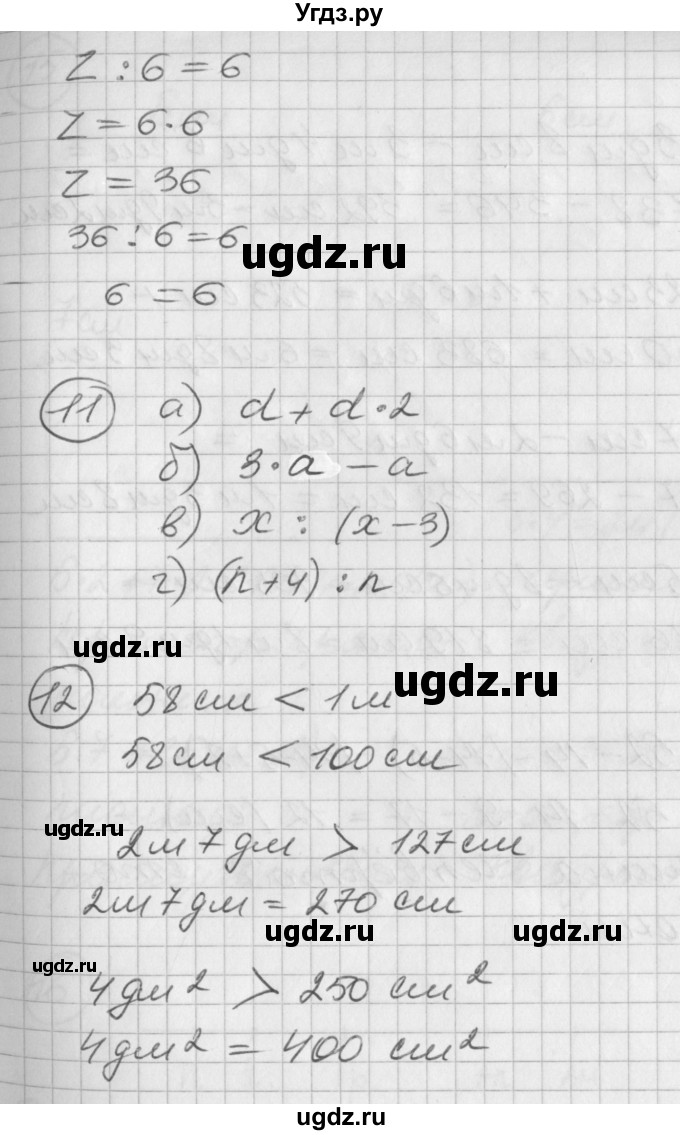 Угдз.ру
z : 6 = 6
z = 6·6
z = 36
36 : 6 = 6
ugdz.ru
6 = 6
11 а) d + d·2
б) 3·a – a
в) x : (x – 3)
г) (n+4) : n
ugdz.ru
ugdz.ru
12 58 см < 1 м
58 см < 100 см
ugdz.ru
2 м 7 дм > 127 см
2 м 7 дм = 270 см
ugdz.ru
ugdz.ru
ugdz.ru
4 дм² > 250 см²
4 дм² = 400 см²
ugdz.ru